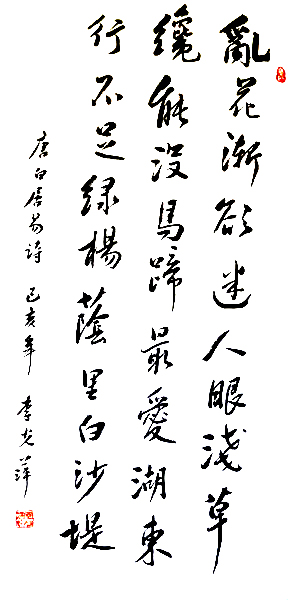 亂花漸欲迷人眼淺草
纔能沒馬蹄最愛湖東
行不足綠楊蔭里白沙堤
唐白居易詩 己亥年 李光萍